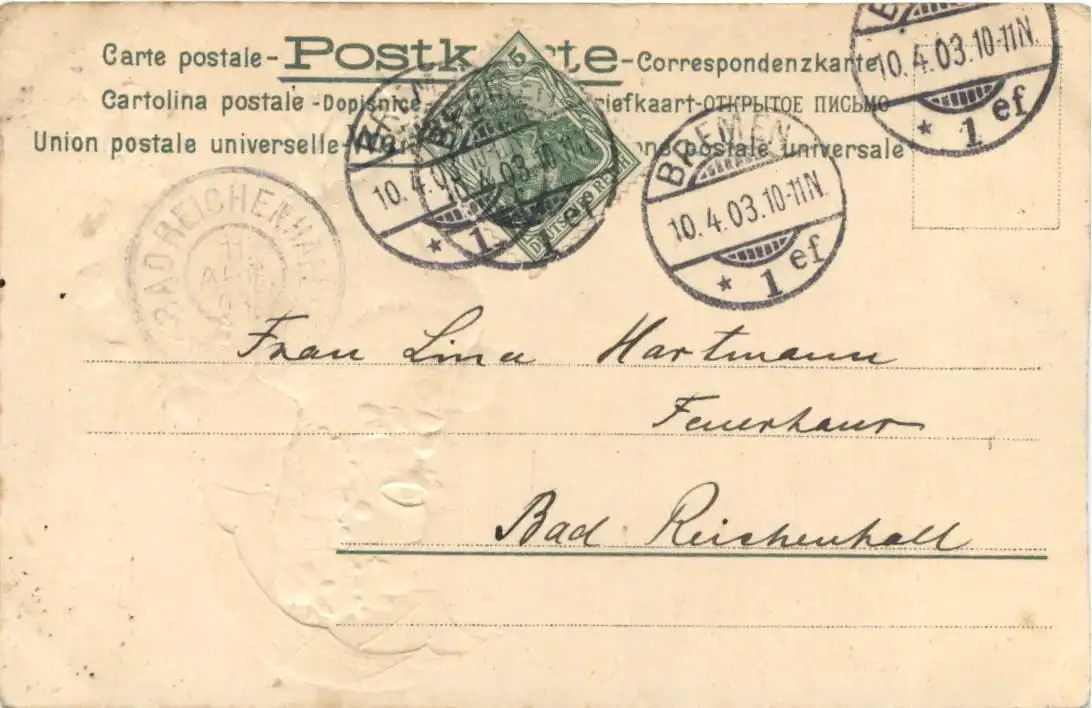 Carte postale - Postkarte - Correspondenzkarte
Cartolina postale - Dopisnice briefkaart - ОТКРЫТОЕ ПИСЬМО
Union postale universelle - postale universale
5
DEUTSCHES REICH
BREMEN
10.4.03.10-11N.
* 1 ef
BREMEN
10.4.03.10-11N.
* 1 ef
BREMEN
10.4.03.10-11N.
* 1 ef
10.4.03.10-11N.
* 1 ef
BAD REICHENHALL
Frau Lina Hartmann
Feuerhaus
Bad Reichenhall